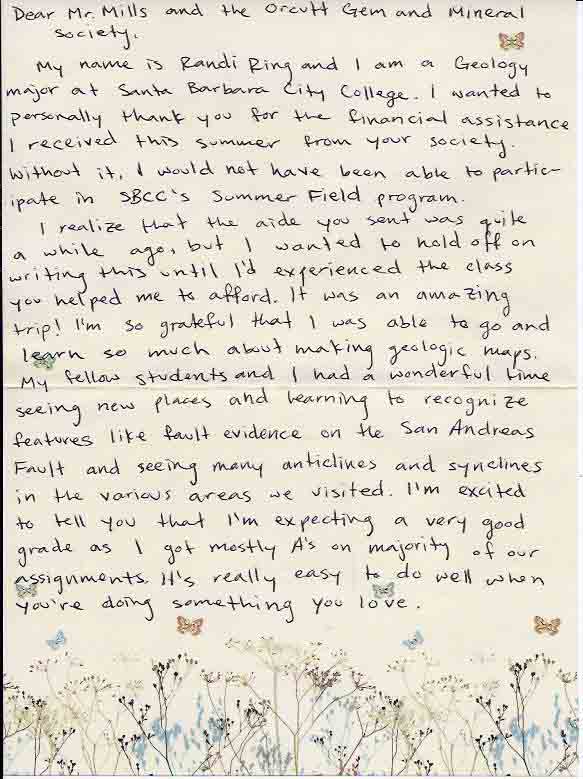 Dear Mr. Mills and the Orcutt Gem and Mineral
Society,
My name is Randi Ring and I am a Geology
major at Santa Barbara City College. I wanted to
personally thank you for the financial assistance
I received this summer from your society.
Without it, I would not have been able to partic-
ipate in SBCC's Summer Field program.
I realize that the aide you sent was quite
a while ago, but I wanted to hold off on
writing this until I'd experienced the class
you helped me to afford. It was an amazing
trip! I'm so grateful that I was able to go and
learn so much about making geologic maps.
My fellow students and I had a wonderful time
seeing new places and learning to recognize
features like fault evidence on the San Andreas
Fault and seeing many anticlines and synclines
in the various areas we visited. I'm excited
to tell you that I'm expecting a very good
grade as I got mostly A's on majority of our
assignments. It's really easy to do well when
you're doing something you love.